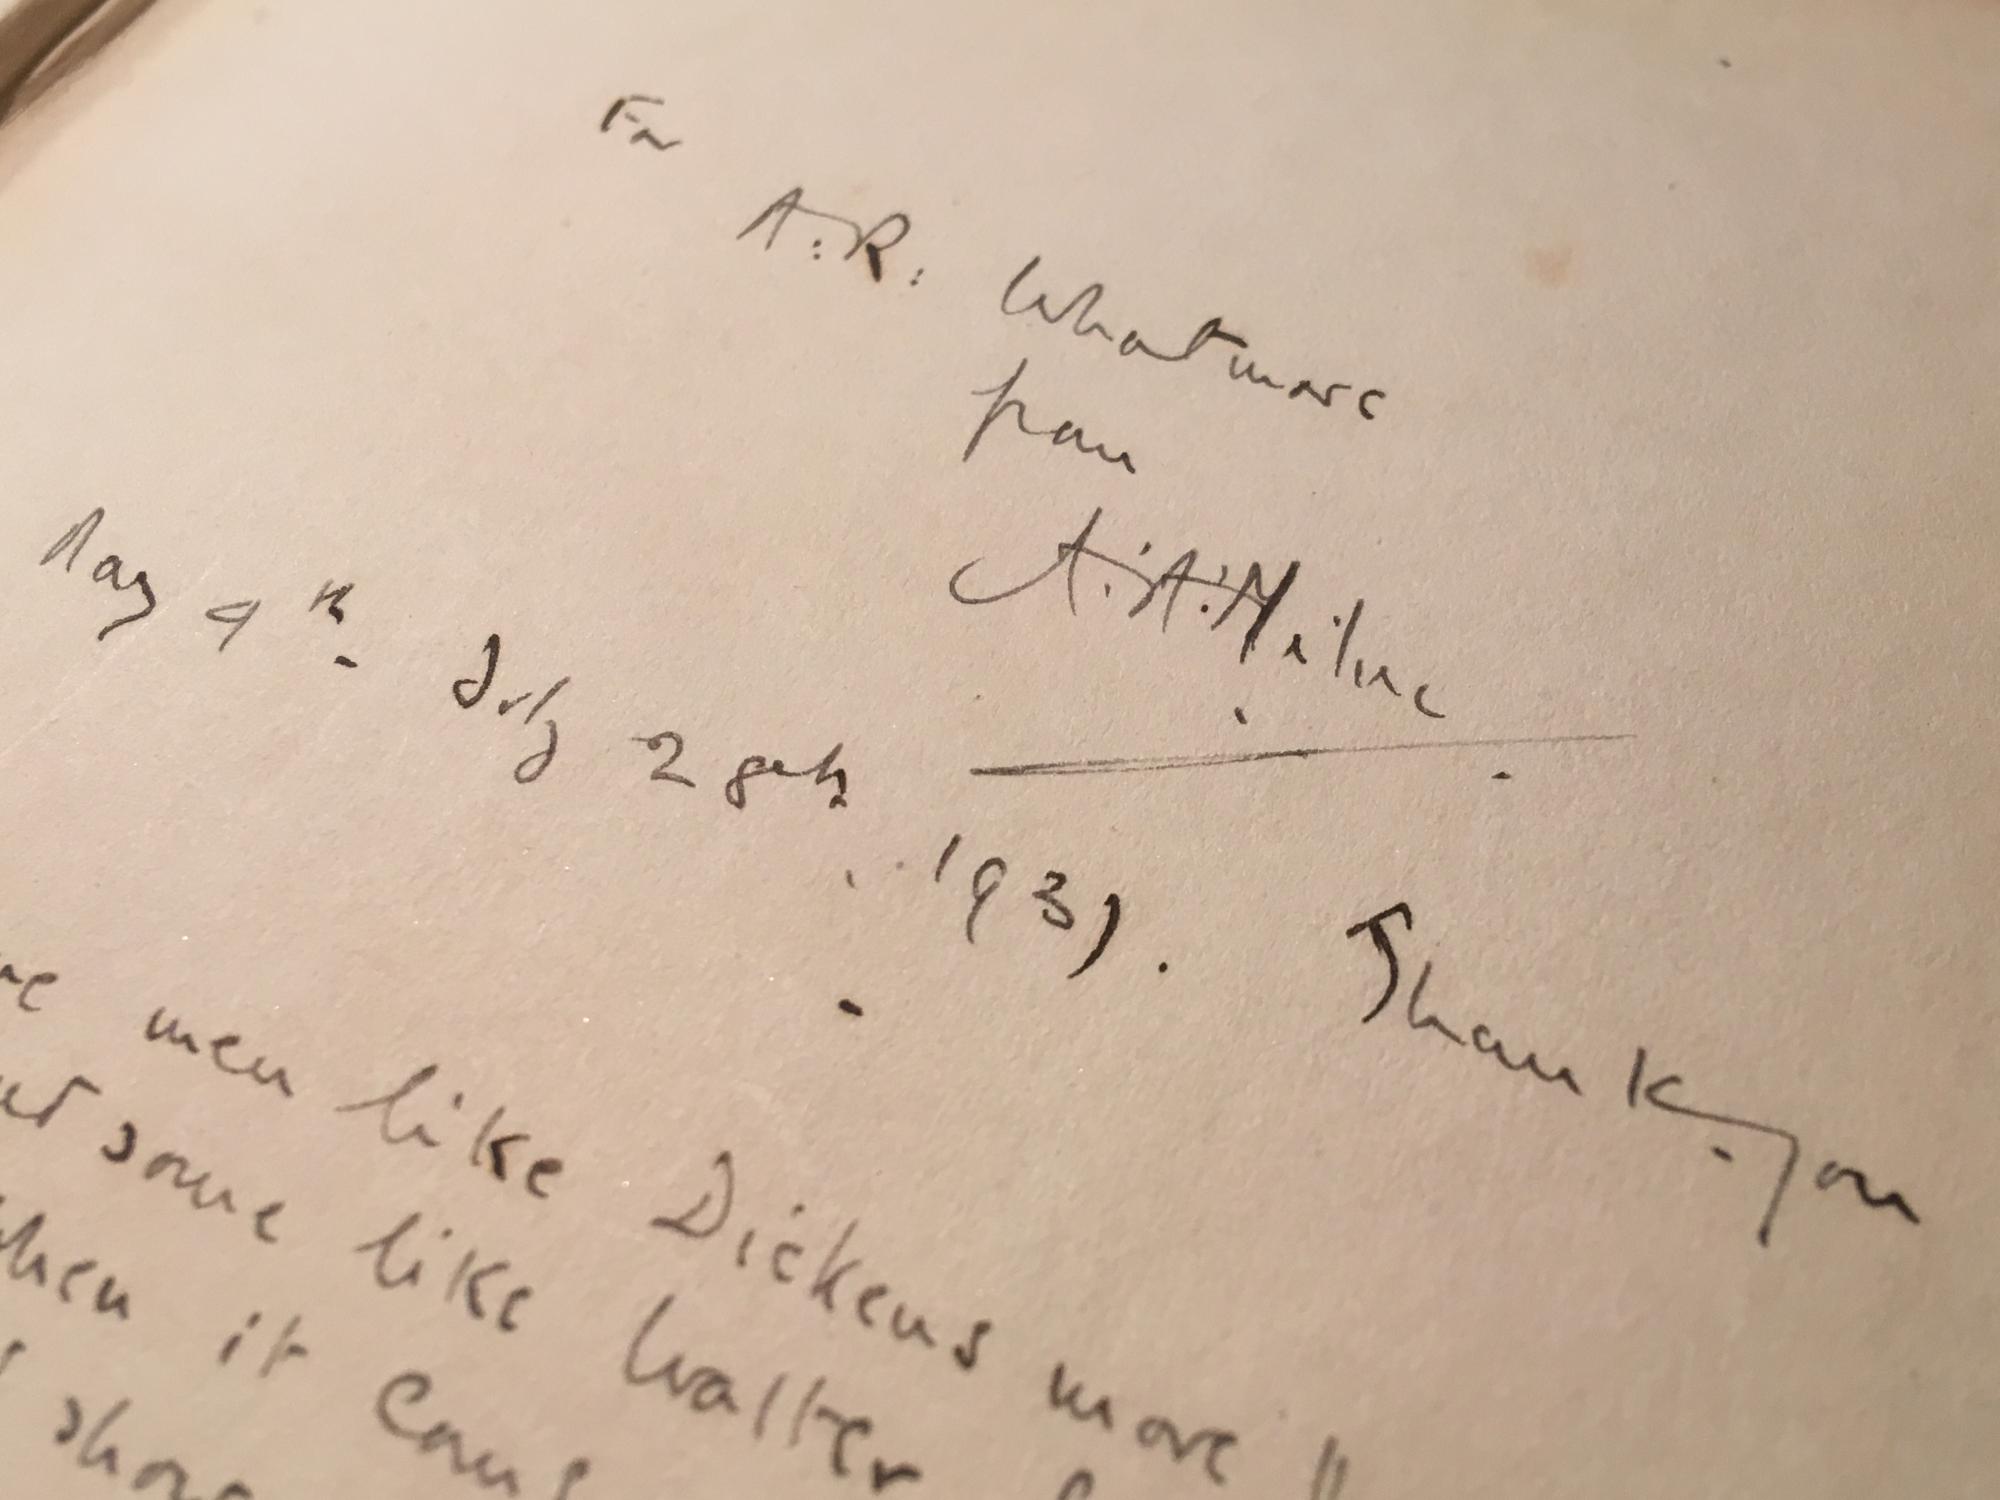 For
A.R. Whatmore
from
A.A. Milne
May 9th - July 2
1931. Thank-you
men like Dickens more
some like Walter
it